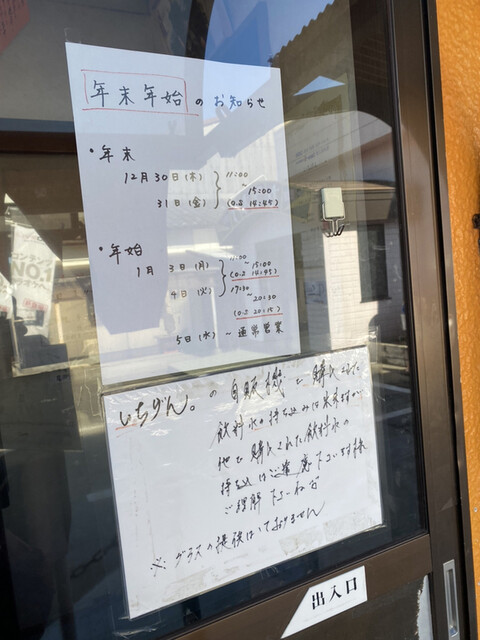 年末年始のお知らせ
・年末
12月30日(木) 11:00
31日(金) ~15:00
(O.S 14:45)
・年始
1月3日(月) 11:00~15:00
(O.S 14:45)
4日(火) 17:30~20:30
(O.S 20:15)
5日(水)~通常営業
いちげん。の自販機で購入された
飲料水の持ち込みは出来ますが
他で購入された飲料水の
持込はご遠慮下さいます様
ご理解下さいませ
※グラスの提供はしておりません
出入口